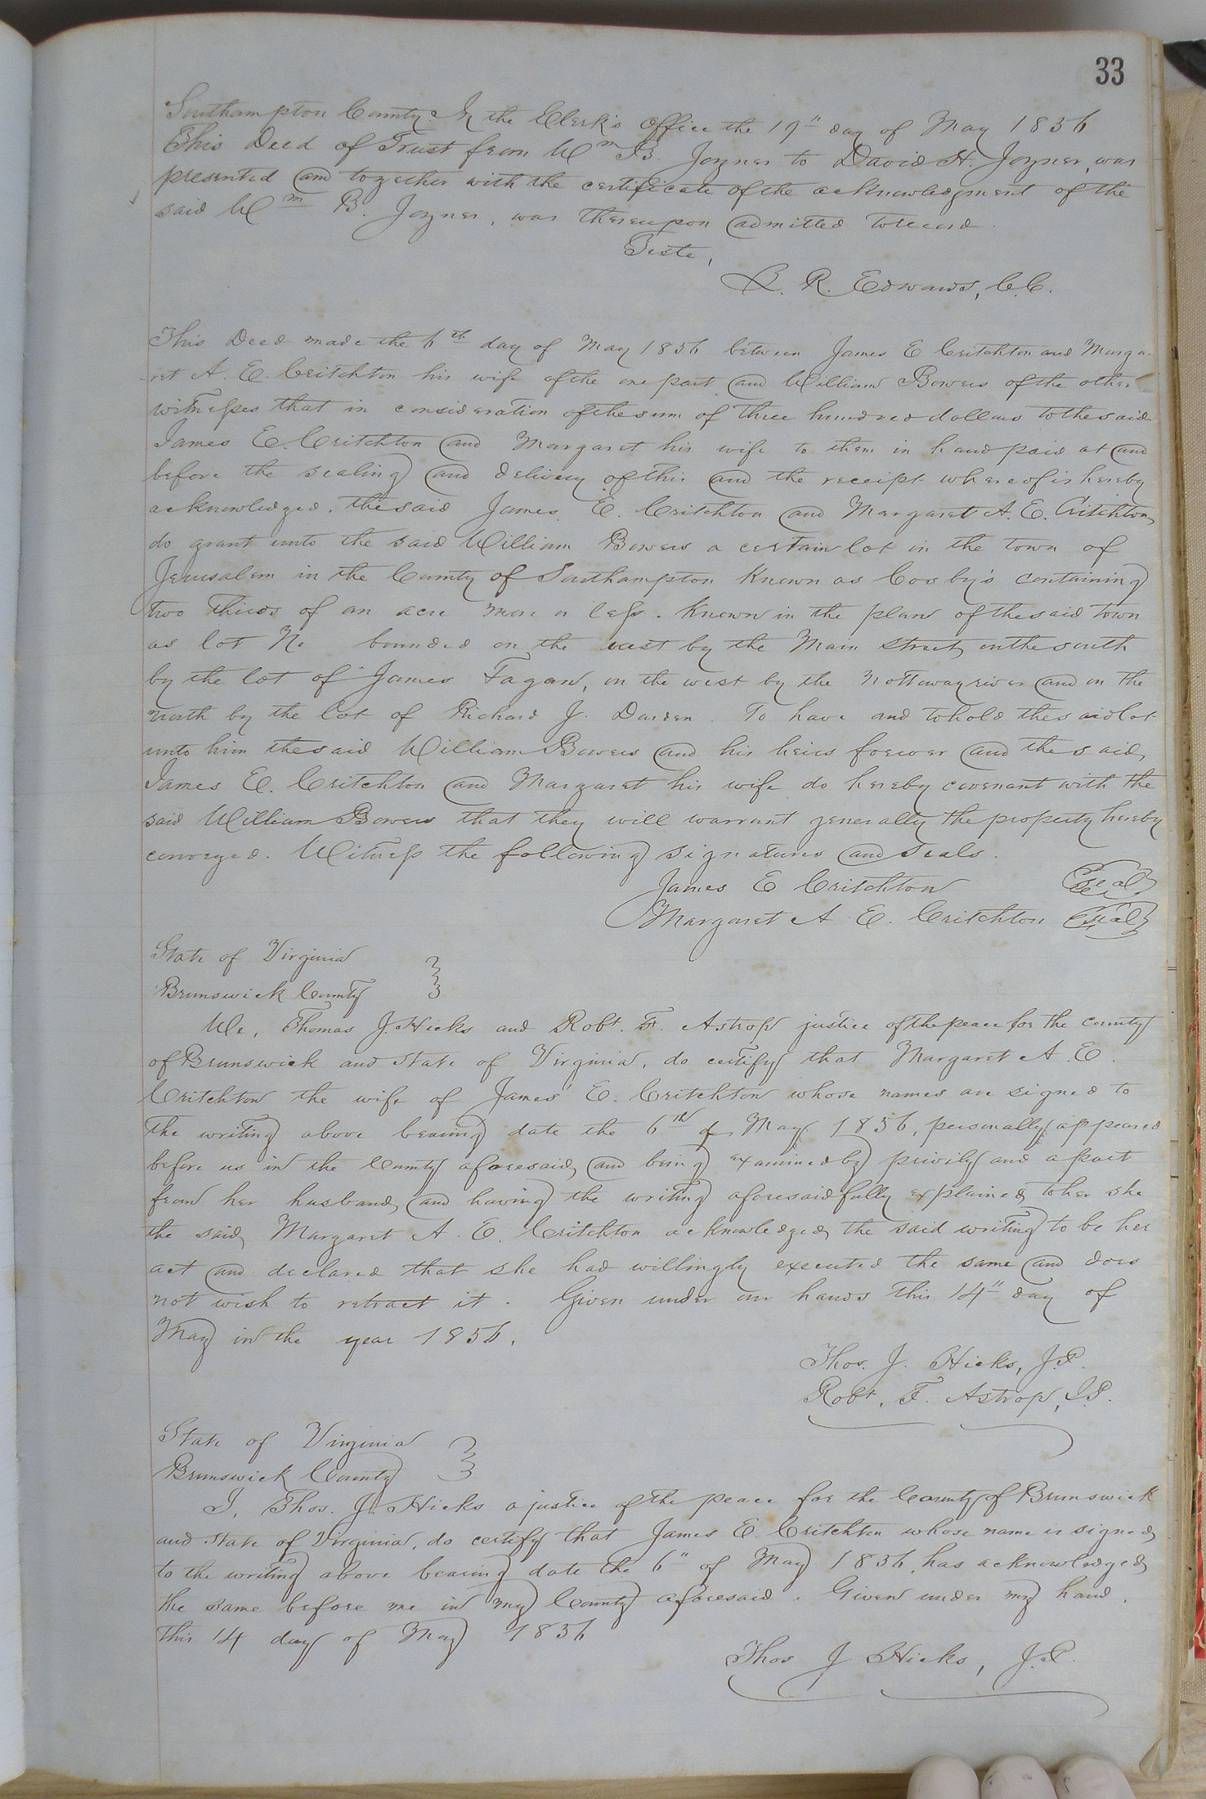 33
Southampton County In the Clerk's Office the 19" day of May 1856
This Deed of Trust from Wm B. Joyner to David H. Joyner, was
presented and together with the certificate of the acknowledgment of the
said Wm B. Joyner, was thereupon admitted to record.
Teste,
L. R. Edwards, C.C.
This Deed made the 6th day of May 1856 between James E Critchton and Marga-
ret A. E. Critchton his wife of the one part and William Bowers of the other
witnesses that in consideration of the sum of three hundred dollars to the said
James E. Critchton and Margaret his wife to them in hand paid at and
before the sealing and delivery of this and the receipt whereof is hereby
acknowledged, the said James E. Critchton and Margaret A. E. Critchton
do grant unto the said William Bowers a certain lot in the town of
Jerusalem in the County of Southampton Known as Cosby's containing
two thirds of an acre more or less. Known in the plan of the said town
as lot No bounded on the east by the Main Street, on the south
by the lot of James Fagan, on the west by the Nottoway river and on the
north by the lot of Richard J. Darden. To have and to hold the said lot
unto him the said William Bowers and his heirs forever and the said,
James E. Critchton and Margaret his wife do hereby covenant with the
said William Bowers that they will warrant generally the property hereby
conveyed. Witness the following signatures and seals.
James E Critchton Seal
Margaret A E. Critchton Seal
State of Virginia
Brunswick County
We, Thomas J. Hicks and Robt. F. Astrop justice of the peace for the county
of Brunswick and State of Virginia, do certify that Margaret A. E.
Critchton the wife of James E. Critchton whose names are signed to
the writing above bearing date the 6th of May 1856, personally appeared
before us in the County aforesaid, and being examined by privily and apart
from her husband, and having the writing aforesaid fully explained to her she
the said, Margaret A. E. Critchton acknowledged, the said writing to be her
act and declared that she had willingly executed the same and does
not wish to retract it. Given under our hands this 14" day of
May in the year 1856.
Thos. J. Hicks, J.P.
Robt. F. Astrop, J.P.
State of Virginia
Brunswick County
I, Thos. J. Hicks a justice of the peace for the County of Brunswick
and State of Virginia, do certify that James E Critchton whose name is signed,
to the writing above bearing date the 6" of May 1856, has acknowledged,
the same before me in my County aforesaid. Given under my hand.
this 14 day of May 1856
Thos J Hicks, J.P.